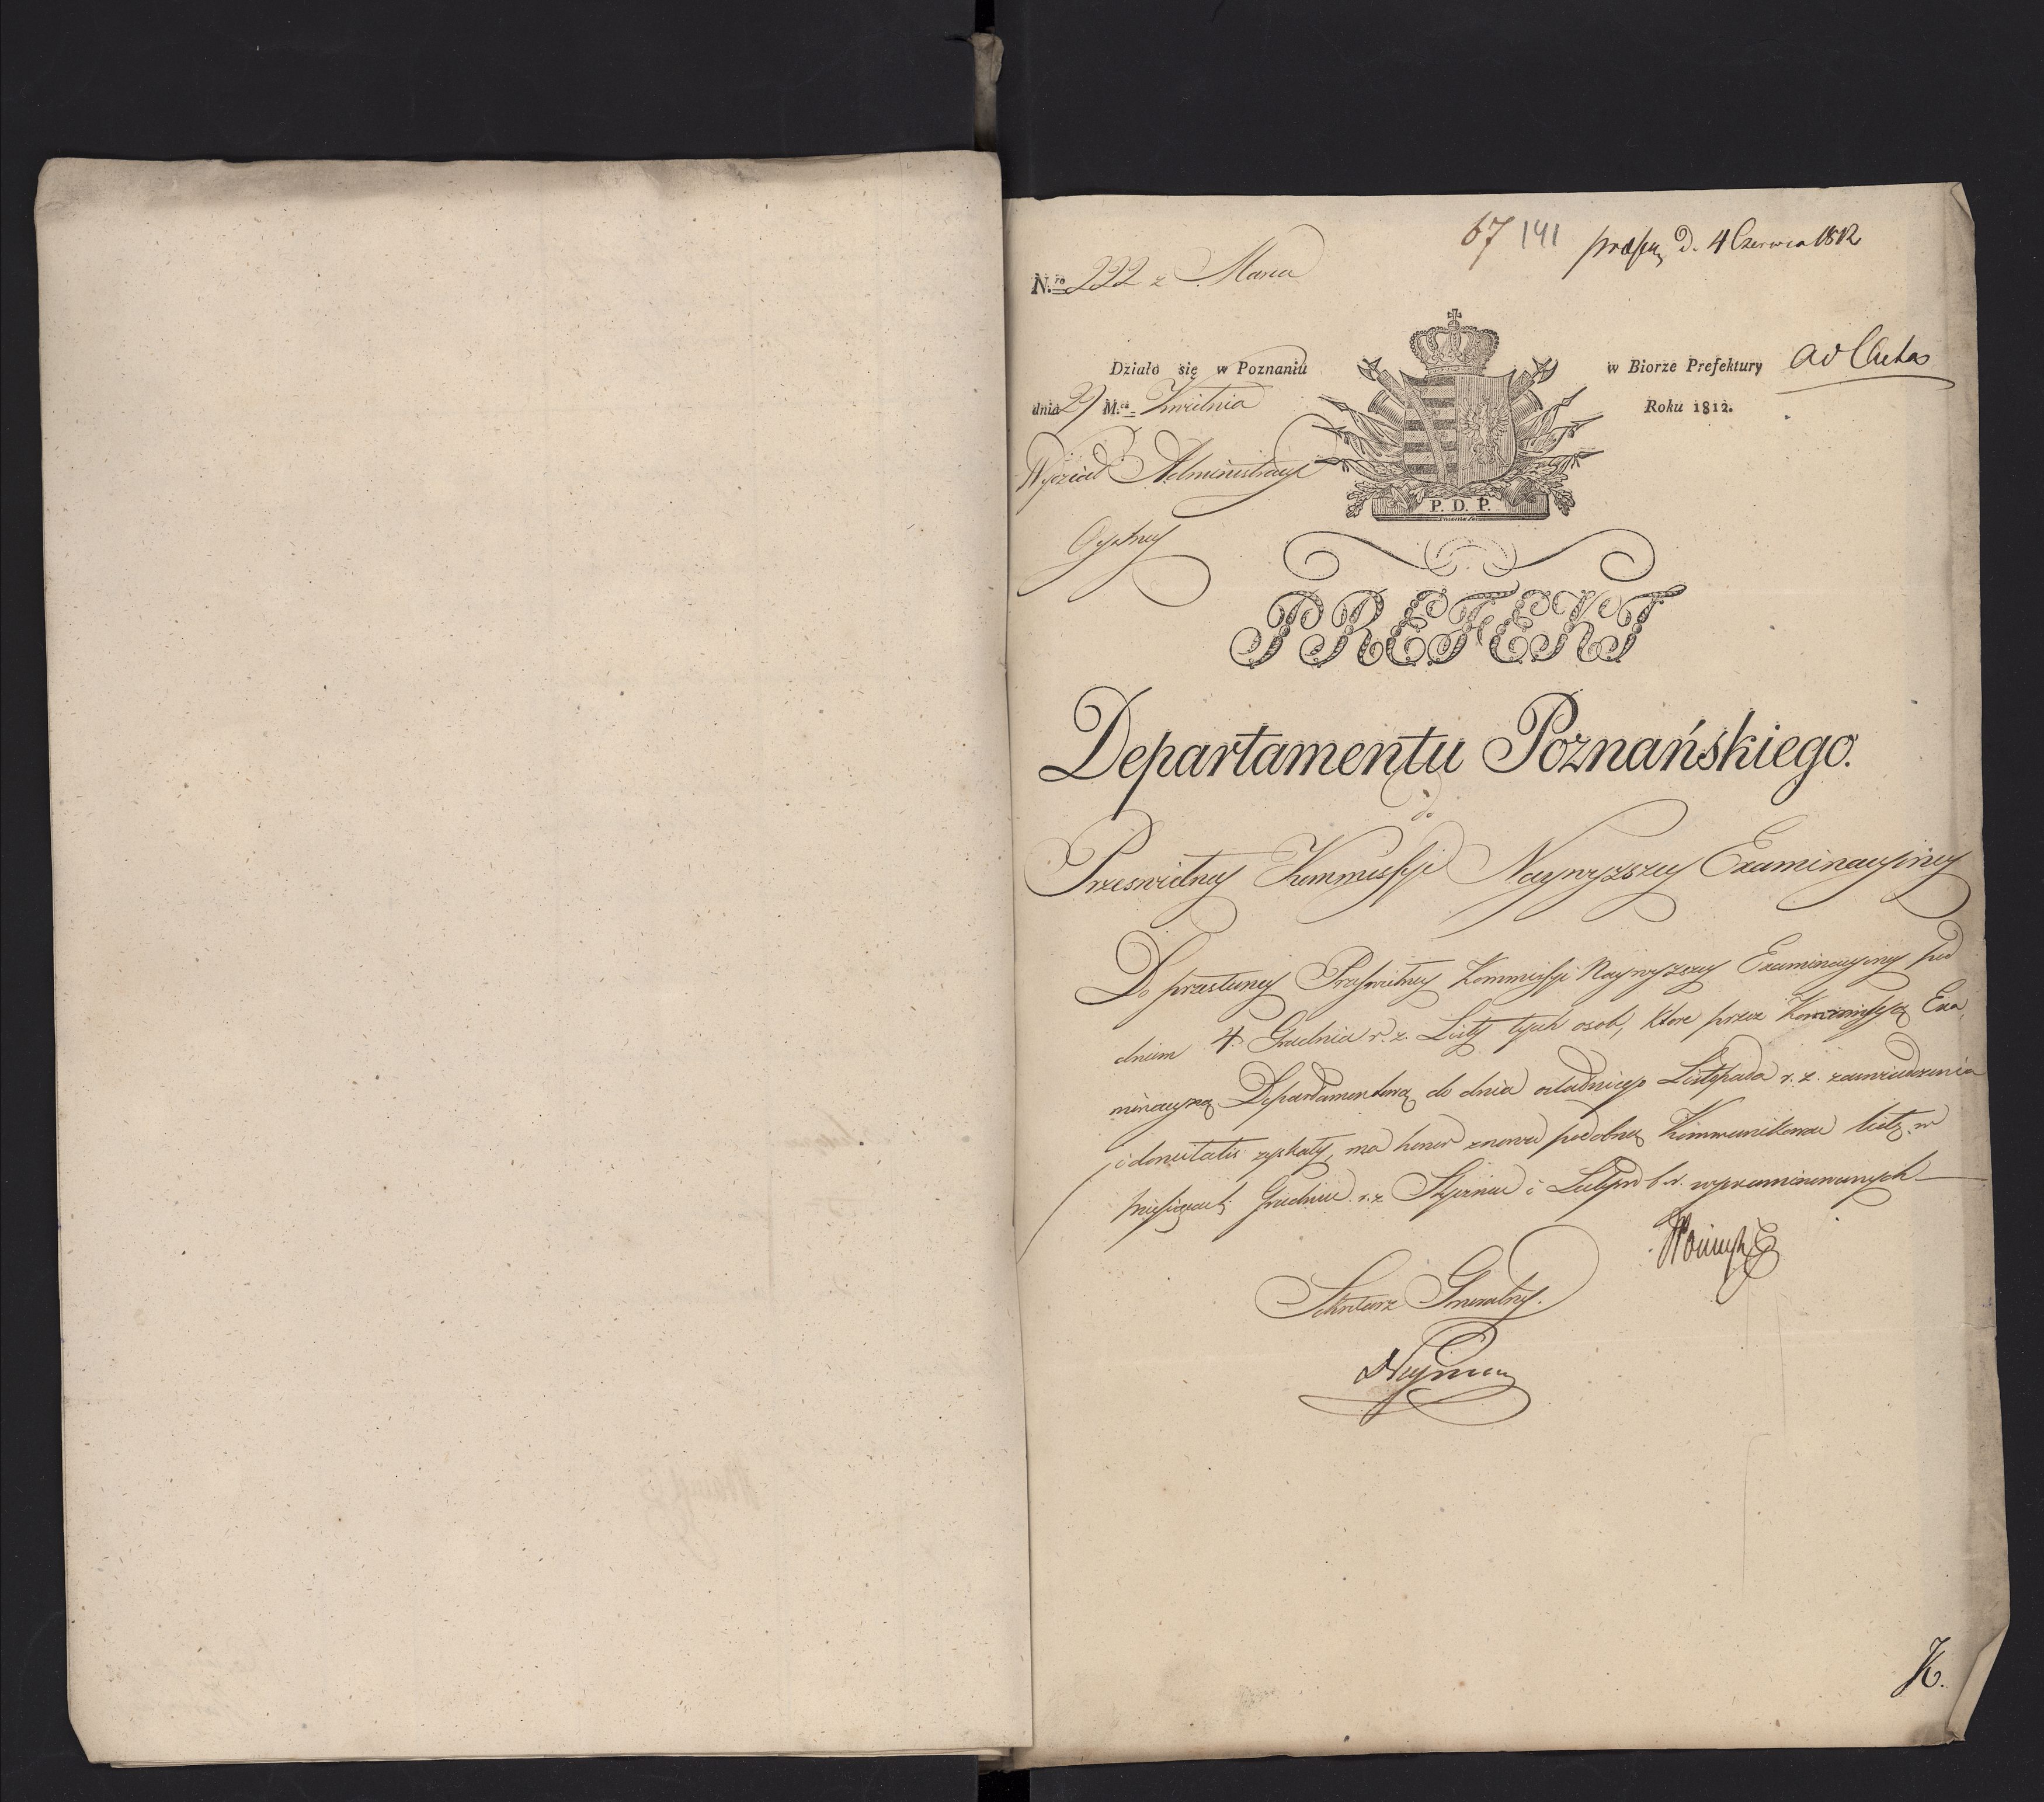 67 141 præs. d. 4 Czerwca 1812
N.ro 222 z Marca
Działo się w Poznaniu w Biorze Prefektury ad Acta
dnia 27 M.ca Kwietnia Roku 1812.
Wydział Administracyi
P. D. P.
PREFEKT
Departamentu Poznańskiego.
do
Prześwietney Kommissyi Naywyższey Examinacyiney
Do przesłaney Prześwietney Kommissyi Naywyższey Examinacyiney pod
dniem 4. Grudnia r. z. Listy tych osob, które przez Kommissyą Exa
minacyiną Departamentową do dnia ostatniego Listopada r. z. zaświadczenia
idoneitatis zyskały, ma honor znowu podobną kommunikować listę w
miesiącach Grudniu r. z. Styczniu i Lutym b. r. wyexaminowanych
Sekretarz Generalny.
K.